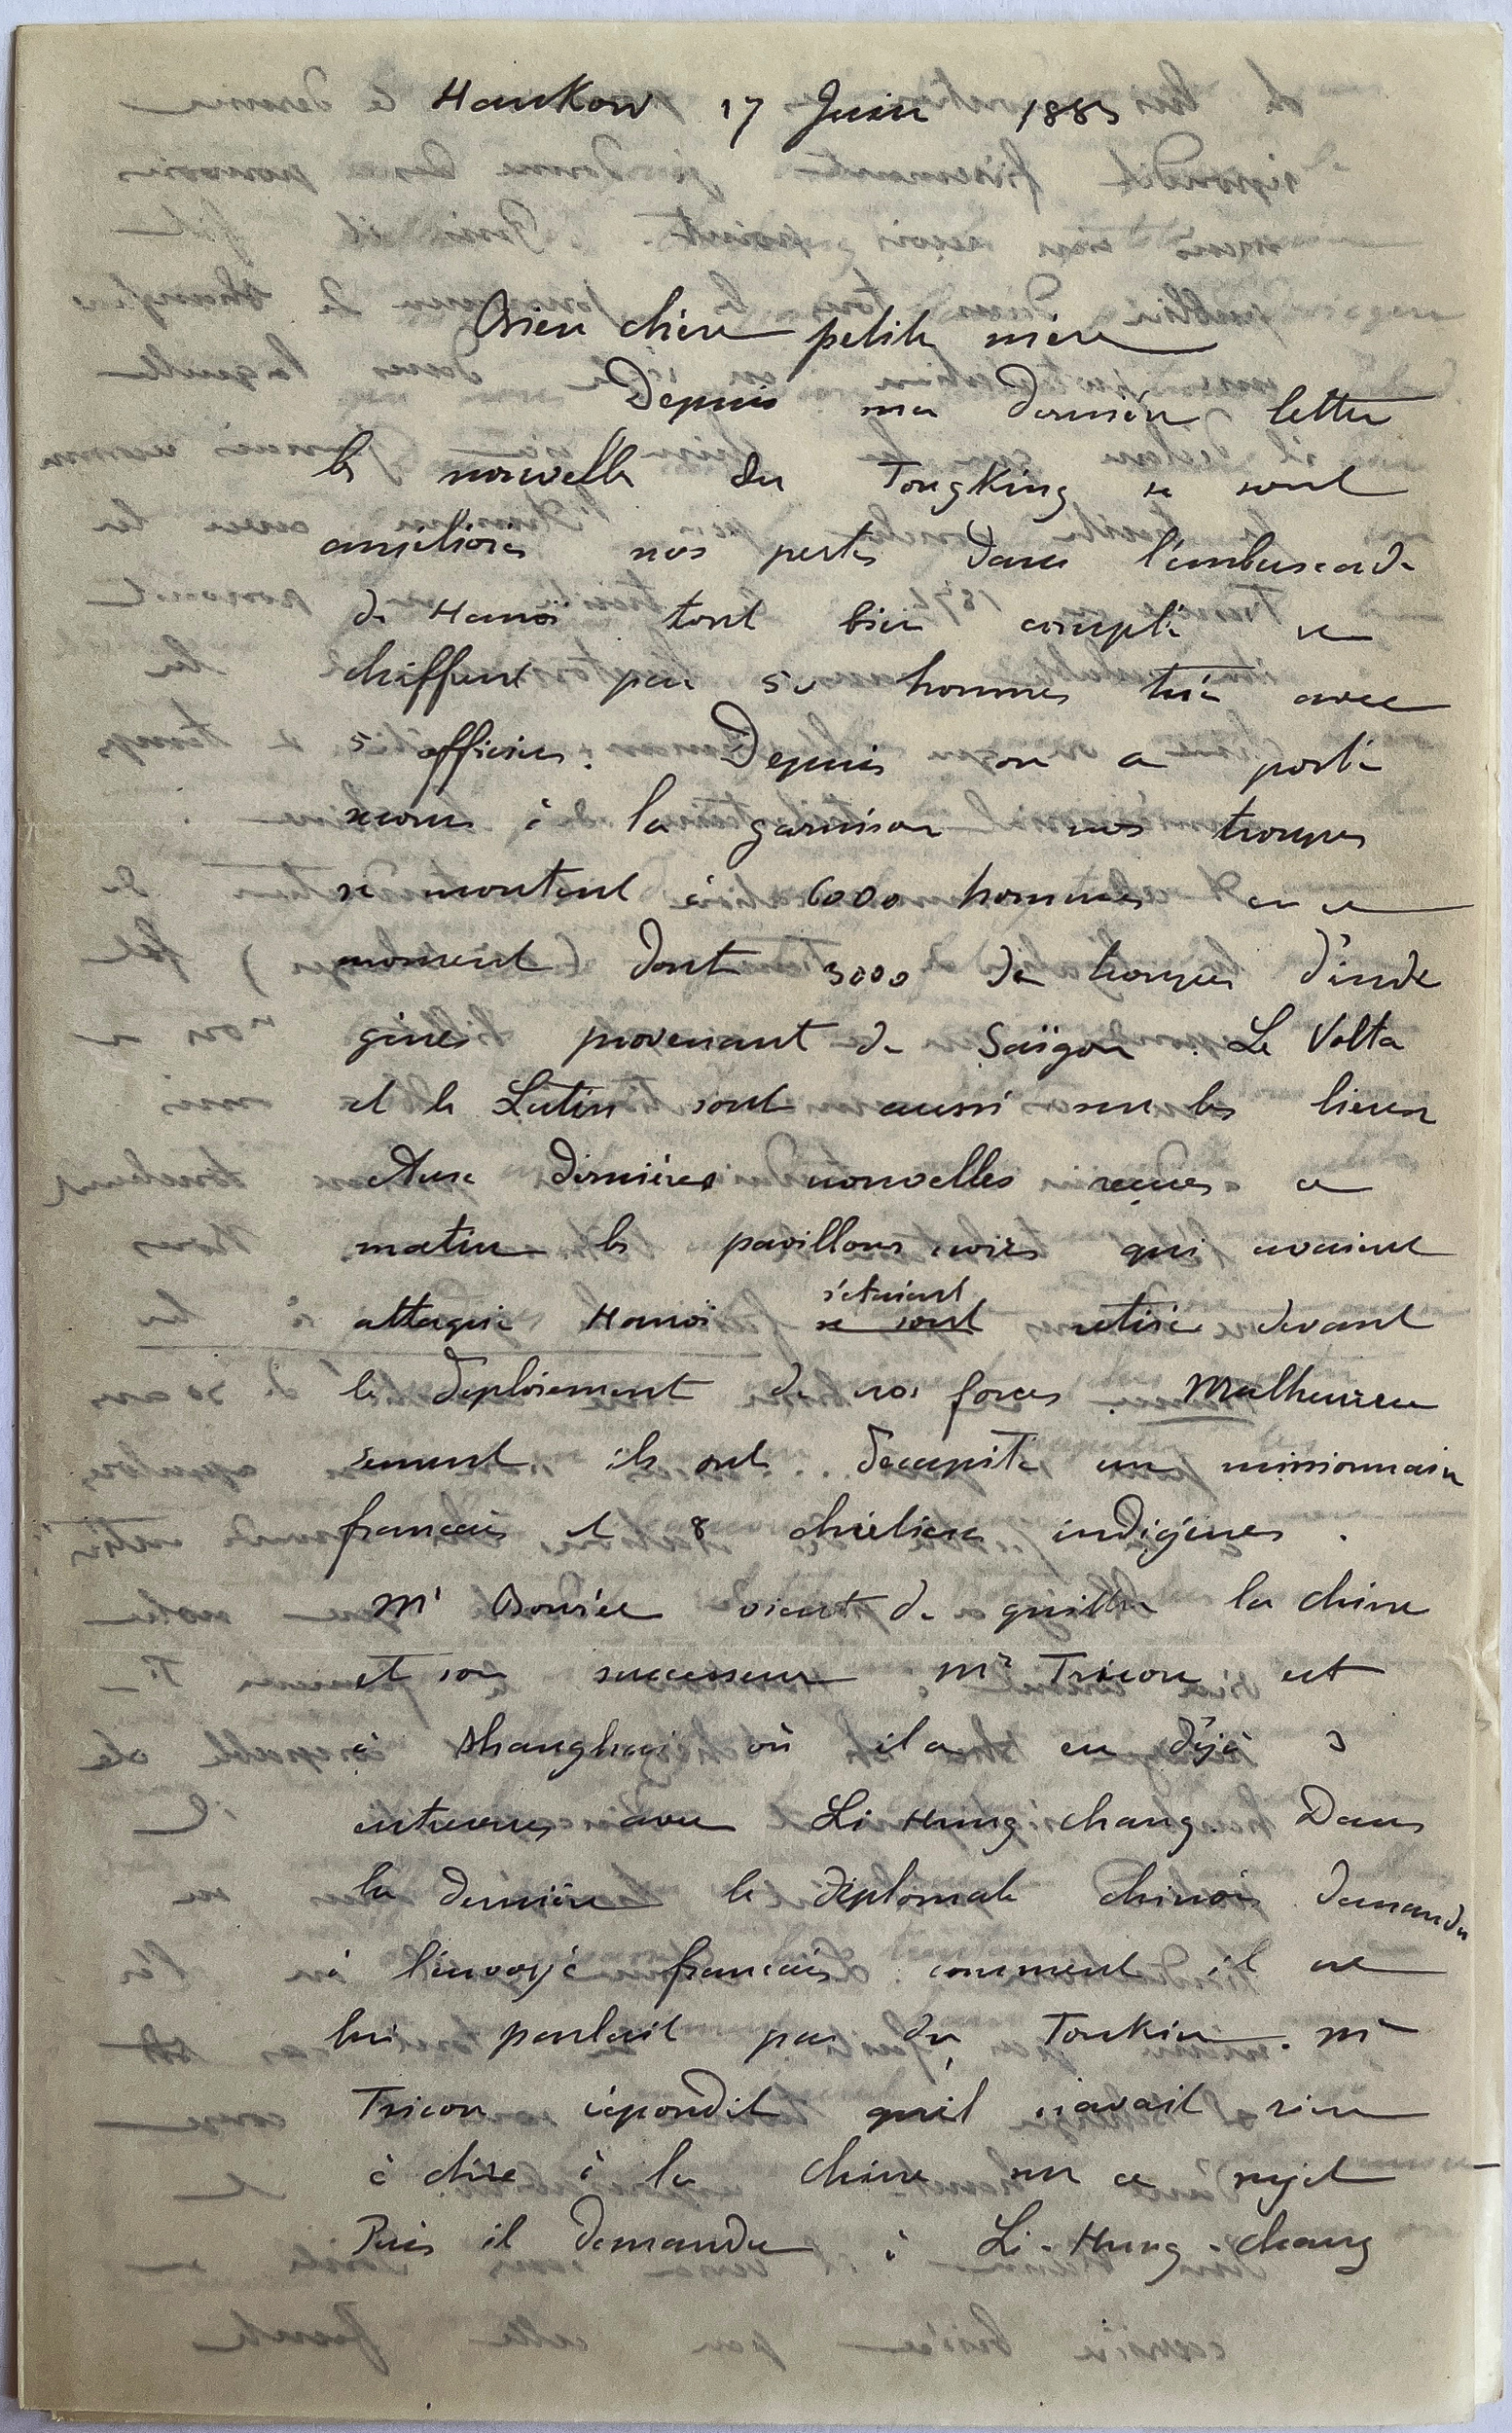 Hankow 17 Juin 1883
Bien chère petite mère
Depuis ma dernière lettre
les nouvelles du TongKing se sont
améliorées nos pertes dans l'embuscade
de Hanoï tout bien compté se
chiffrent par 50 hommes tués avec
5 officiers. Depuis on a porté
secours à la garnison nos troupes
se montent à 6000 hommes en ce
moment dont 3000 de troupes d'indi
gènes provenant de Saïgon. Le Volta
et le Lutin sont aussi sur les lieux
Aux dernières nouvelles reçues ce
matin les pavillons noirs qui avaient
s'étaient
attaqué Hanoï se sont retirés devant
le deploiement de nos forces. Malheureu
sement ils ont decapité un missionnaire
français et 8 chrétiens indigènes.
Mr Bourée vient de quitter la chine
et son successeur Mr Tricou est
à Shanghai où il a eu déjà 3
entrevues avec Li Hung chang. Dans
la dernière le diplomate chinois demanda
à l'envoyé français comment il ne
lui parlait pas du Tonkin. Mr
Tricou répondit qu'il n'avait rien
à dire à la chine sur ce sujet
Puis il demanda à Li-Hung-chang